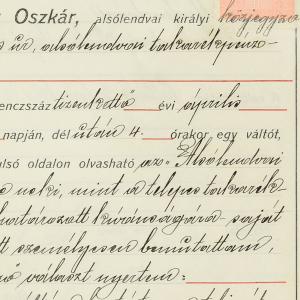 Oszkár, alsólendvai királyi közjegyző
s úr, alsólendvai takarékpénz-
enczszáz tizenkettő évi április
napján, dél után 4. órakor egy váltót,
ulsó oldalon olvasható az "Alsólendvai
neki, mint a telepes takarék-
határozott kívánságára saját
tt személyesen bemutattam,
választ nyertem: